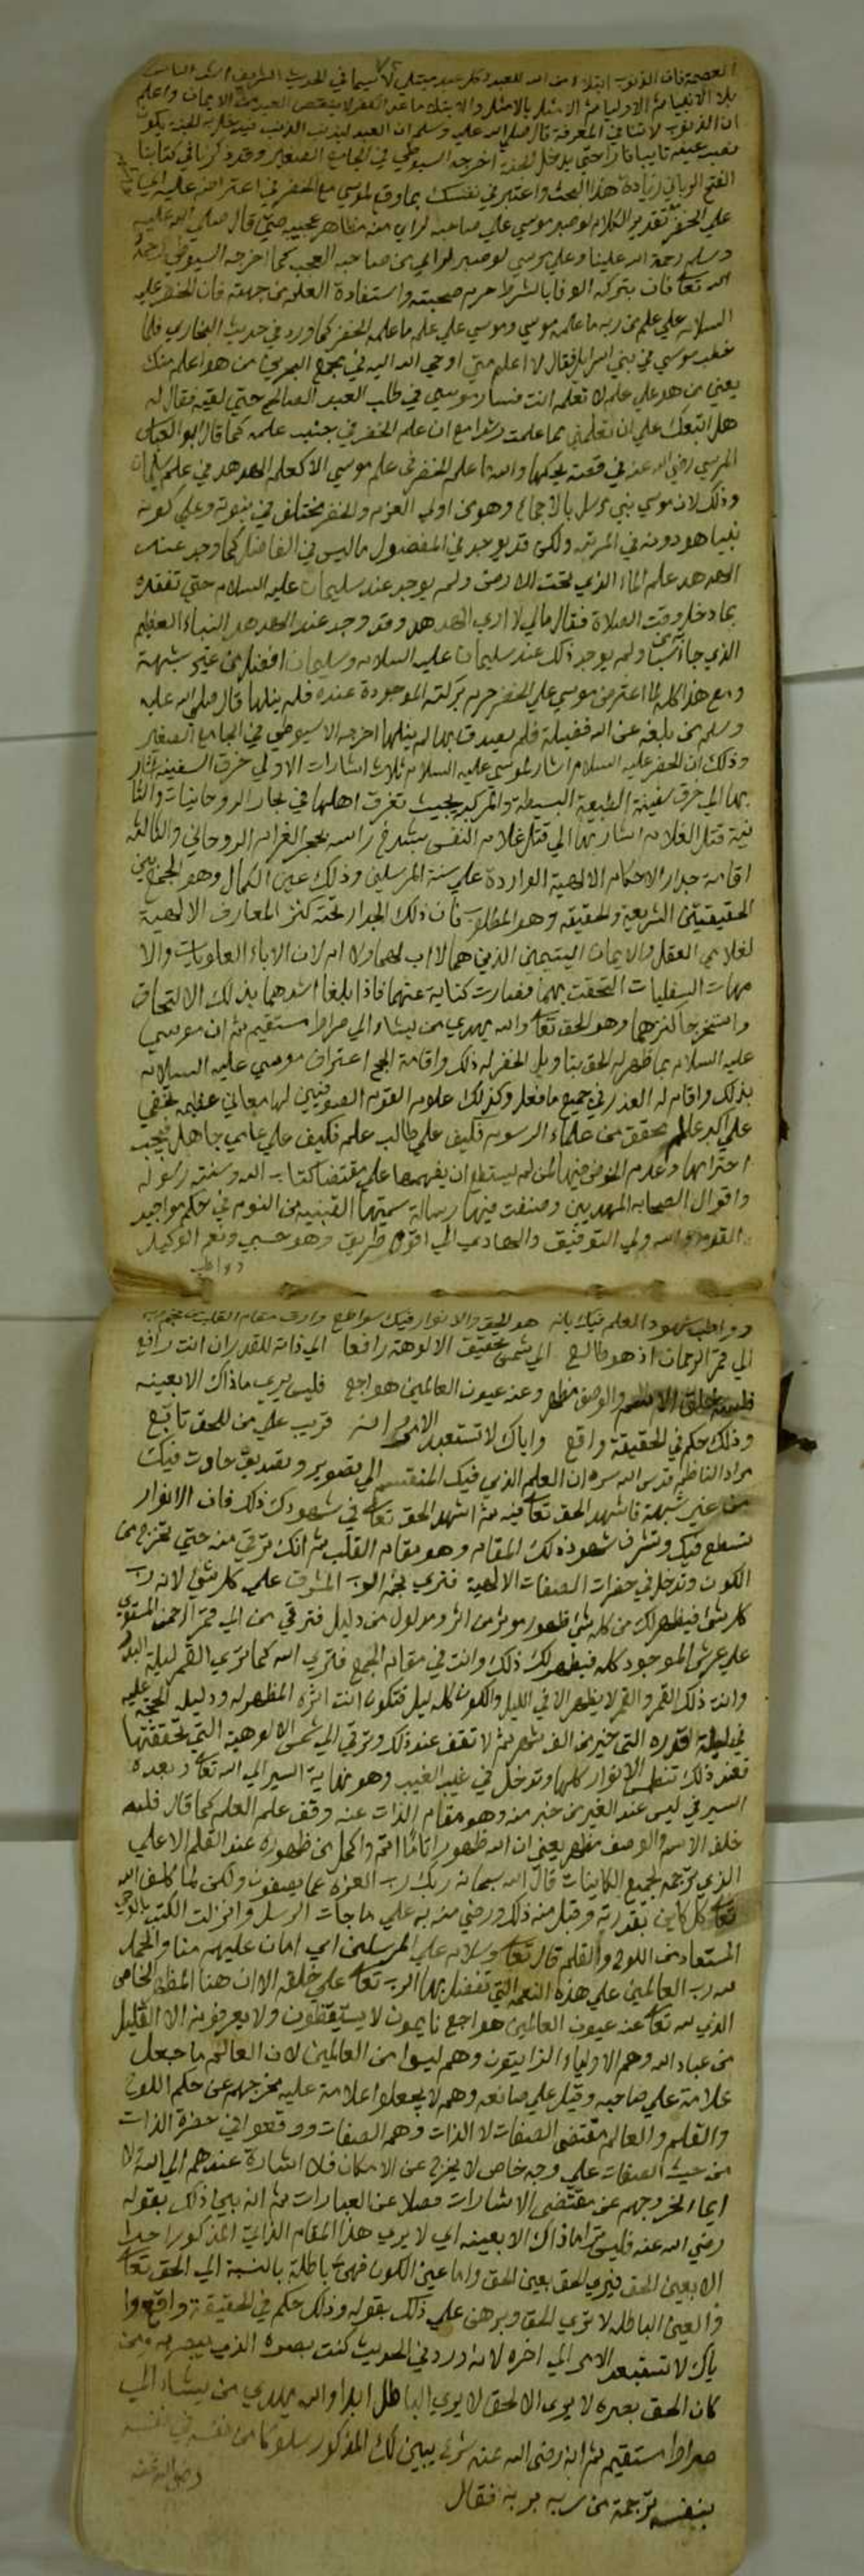 العصمة فان الذنوب ابتلا من الله للعبد وكل عبد مبتلي لا سيما في الحديث الشريف اشد الناس
بلاء الانبيا ثم الاوليا ثم الامثل بالامثل والابتلا ماعدا الكفر لا ينقص العبد من الايمان واعلم
ان الذنوب لا تنافي المعرفة قال صلى الله عليه وسلم ان العبد ليذنب الذنب فيدخل به الجنة يكون
نصب عينيه تايبا فارا حتى يدخل الجنة اخرجه السيوطي في الجامع الصغير وقد ذكرنا في كتابنا
الفتح الرباني زيادة هذا البحث واعتبر في نفسك بما وقع لموسي مع الخضر في اعتراضه عليه
علي الخضر تقدير الكلام لو صبر موسي علي صاحبه لراي منه مظاهر عجيبه حتي قال صلى الله عليه
وسلم رحمة الله علينا وعلي موسي لو صبر لراي من صاحبه العجب كما اخرجه السيوطي رحمه
الله تعالى فان بتركه الوفا بالشرط حرم صحبته واستفادة العلم من جهته فان الخضر عليه
السلام علي علم من ربه ما علمه موسي وموسي علي علم ما علمه الخضر كما ورد في حديث البخاري فلما
خطب موسي في بني اسرايل فقال لا اعلم مني اوحي الله اليه في مجمع البحرين من هو اعلم منك
يعني من هو علي علم لا تعلمه انت فسار موسي في طلب العبد الصالح حتي لقيه فقال له
هل اتبعك علي ان تعلمني مما علمت رشدا مع ان علم الخضر في جنب علمه كما قال ابو العباس
المرسي رضي الله عنه في قصته يحكيها والله ما علم الخضر في علم موسي الا كعلم الهدهد في علم سليمان
وذلك لان موسي نبي مرسل بالاجماع وهو من اولي العزم والخضر مختلف في نبوته وعلي كونه
نبيا هو دونه في المرتبه ولكن قد يوجد في المفضول ما ليس في الفاضل كما وجد عند
الهدهد علم الماء الذي تحت الارض ولم يوجد عند سليمان عليه السلام حتي تفقده
بما دخل وقت الصلاة فقال مالي لا اري الهدهد وقد وجد عند الهدهد النباء العظيم
الذي جا من سبا ولم يوجد ذلك عند سليمان عليه السلام وسليمان افضل من غير شبهة
ومع هذا كله لما اعترض موسي علي الخضر حرم بركته الموجودة عنده فلم ينلها قال صلى الله عليه
وسلم من بلغه عن الله فضيلة فلم يصدق بها لم ينلها اخرجه الاسيوطي في الجامع الصغير
وذلك ان الخضر عليه السلام اشار لموسي عليه السلام ثلاث اشارات الاولي خرق السفينه اشار
بها الي خرق سفينة الطبيعة البسيطة والمركبه بحيث تغرق اهلها في بحار الروحانيات والثا
نية قتل الغلام اشار بها الي قتل غلام النفس بشدخ راسه بحجر الغرام الروحاني والثالثة
اقامة جدار الاحكام الالهية الواردة علي سنة المرسلين وذلك عين الكمال وهو الجمع بين
الحقيقيتين الشريعة والحقيقه وهو المطلوب فان ذلك الجدار تحته كنز المعارف الالهية
لغلامي العقل والايمان اليتيمين الذين هما لا اب لهما ولا ام لان الاباء العلويات والا
مهات السفليات التحقت بهما فصارت كناية عنهما فاذا بلغا اشدهما بذلك الالتحاق
واستخرجا كنزهما وهو الحق تعالى والله يهدي من يشاء الي صراط مستقيم ثم ان موسي
عليه السلام بما ظهر له الحق بتاويل الخضر له ذلك واقامة الحج اعتراف موسي عليه السلام
بذلك واقام له العذر في جميع ما فعل وكذلك علوم القوم الصوفيين لها معاني عظيمه تخفي
علي اكبر عالم محقق من علماء الرسوم فكيف علي طالب علم فكيف علي عامي جاهل فيجب
احترامها وعدم الخوض فيها لمن لم يستطع ان يفهمها علي مقتضا كتاب الله وسنة رسوله
واقوال الصحابه المهديين وصنفت فيها رسالة سميتها التنبيه من النوم في حكم مواجيد
القوم والله ولي التوفيق والهادي الي اقوم طريق وهو حسبي ونعم الوكيل
وواظب
وواظب شهود العلم فيك بانه هو الحق والانوار فيك سواطع
الي قمر الرحمان اذ هو طالع الي شمس تحقيق الالوهة رافعا الي ذاته للقدر ان انت رافع
فلله خلف الاسم والوصف مظهر وعنه عيون العالمين هواجع فليس يري ماذاك الا بعينه
وذلك حكم في الحقيقة واقع واياك لا تستبعد الامر انه قريب علي من للحق تابع
مراد الناظم قدس الله سره ان العلم الذي فيك المنقسم الي تصوير وتصديق حادث فيك
من غير شبهة فاشهد الحق تعالى فيه ثم اشهد الحق تعالى في شهودك ذلك فان الانوار
تسطع فيك وتشرف شهود ذلك المقام وهو مقام القلب ثم انك ترقي منه حتي تخرج من
الكون وتدخل في حضرات الصفات الالهية فتري نجم الرب المشرق علي كل شيء لانه رب
كل شيء فيظهر لك من كل شيء ظهور موثر من اثر ومدلول من دليل فترقي من الي قمر الرحمن المستوي
علي عرش الموجود كله فيظهر لك ذلك وانت في مقام الجمع فتري الله كما تري القمر ليلة البدر
وانت ذلك القمر والقمر لا يظهر الا في الليل والكون كله ليل فتكون انت اثره المظهر له ودليله الحجة عليه
في ليلة قدره التي خير من الف شهر ثم لا تقف عند ذلك وترقي الي شمس الالوهية التي تحققتها
فعند ذلك تنطمس الانوار كلها وتدخل في غيب الغيب وهو نهاية السير الي الله تعالى وبعده
السير في ليس عند الغير من خبر منه وهو مقام الذات عنه وقف علم العلم كما قال فلله
خلف الاسم والوصف مظهر يعني ان الله ظهورا تاما اتم واكمل من ظهوره عند القلم الاعلي
الذي ترجمه لجميع الكاينات قال الله سبحانه ربك رب العزه عما يصفون ولكن لما كلف الله
تعالى كل كاين بقدرته وقبل منه ذلك ورضي منه به علي ما جات الرسل وانزلت الكتب بالوحي
المستعاد من اللوح والقلم قال تعالى وسلام علي المرسلين اي امان عليهم منا والحمد
لله رب العالمين علي هذه النعمه التي تفضل بها الرب تعالى علي خلقه الا ان هنا المظهر الخاص
الذي لله تعالى عنه عيون العالمين هواجع نايمون لا يستيقظون ولا يعرفونه الا القليل
من عباد الله وهم الاولياء الذايقون وهم ليسوا من العالمين لان العالم ما جعل
علامة علي صاحبه وقيل علي صانعه وهم لا يجعلوا علامة عليه لخروجهم عن حكم اللوح
والقلم والعالم مقتضي الصفات لا الذات وهم الصفات ووقعوا في حضرة الذات
من حيث الصفات علي وجه خاص لا يخرج عن الامكان فلا اشارة عندهم الي الله لا
ايما لخروجهم عن مقتضي الاشارات فضلا عن العبارات ثم انه بين ذلك بقوله
رضي الله عنه فليس يري ماذاك الا بعينه اي لا يري هذا المقام الذاتي المذكور احدا
الا بعين الحق فيري الحق بعين الحق واما عين الكون فهي باطلة بالنسبة الي الحق تعالى
والعين الباطله لا تري الحق وبرهن علي ذلك بقوله وذلك حكم في الحقيقة واقع وا
ياك لا تستبعد الامر الي اخره لانه ورد في الحديث كنت بصره الذي يبصر به ومن
كان الحق بصره لا يري الا الحق لا يري الباطل ابدا والله يهدي من يشاء الي
صراط مستقيم ثم انه رضي الله عنه شرع يبين لك المذكور سلوكا من نفسه في نفسه
بنفسه ترجمة من ربه بربه فقال
رضي الله عنه